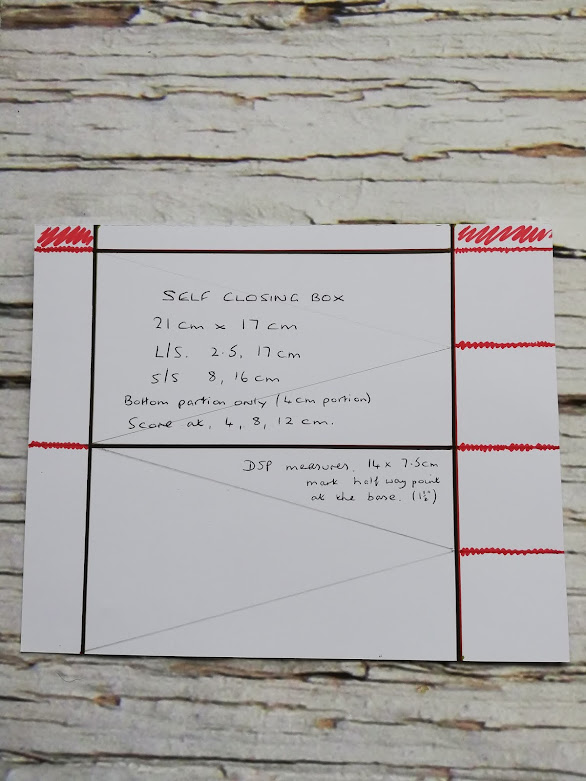 SELF CLOSING BOX
21cm x 17cm
L/S. 2.5, 17cm
S/S 8, 16cm
Bottom portion only (4cm portion)
Score at, 4, 8, 12 cm.
DSP measures, 14 x 7.5cm
mark half way point
at the base. (1½")